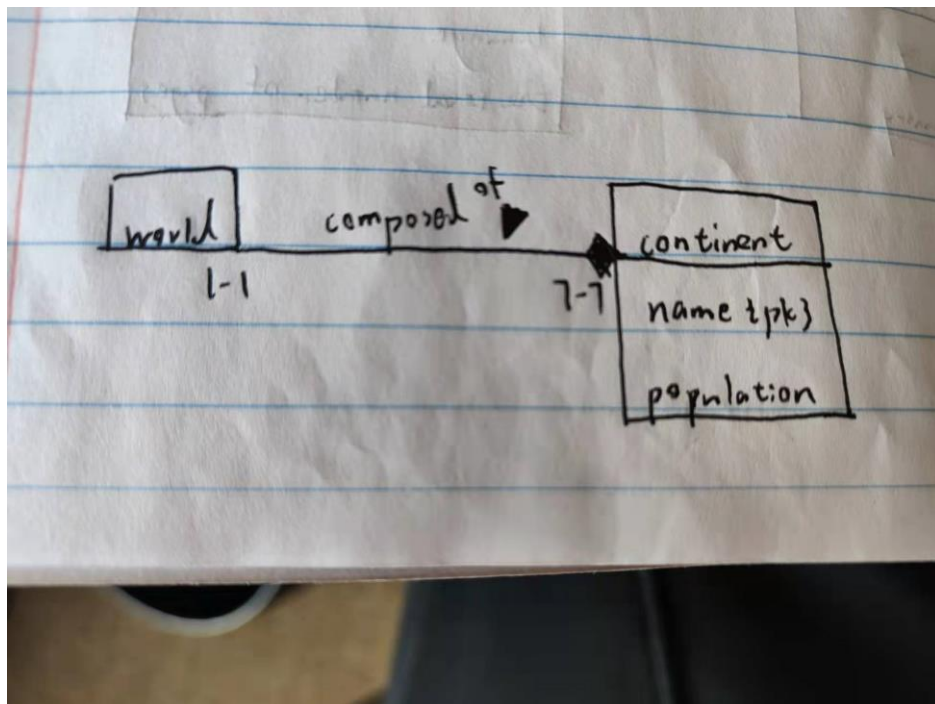 world
composed of
continent
1-1
7-7
name {pk}
population